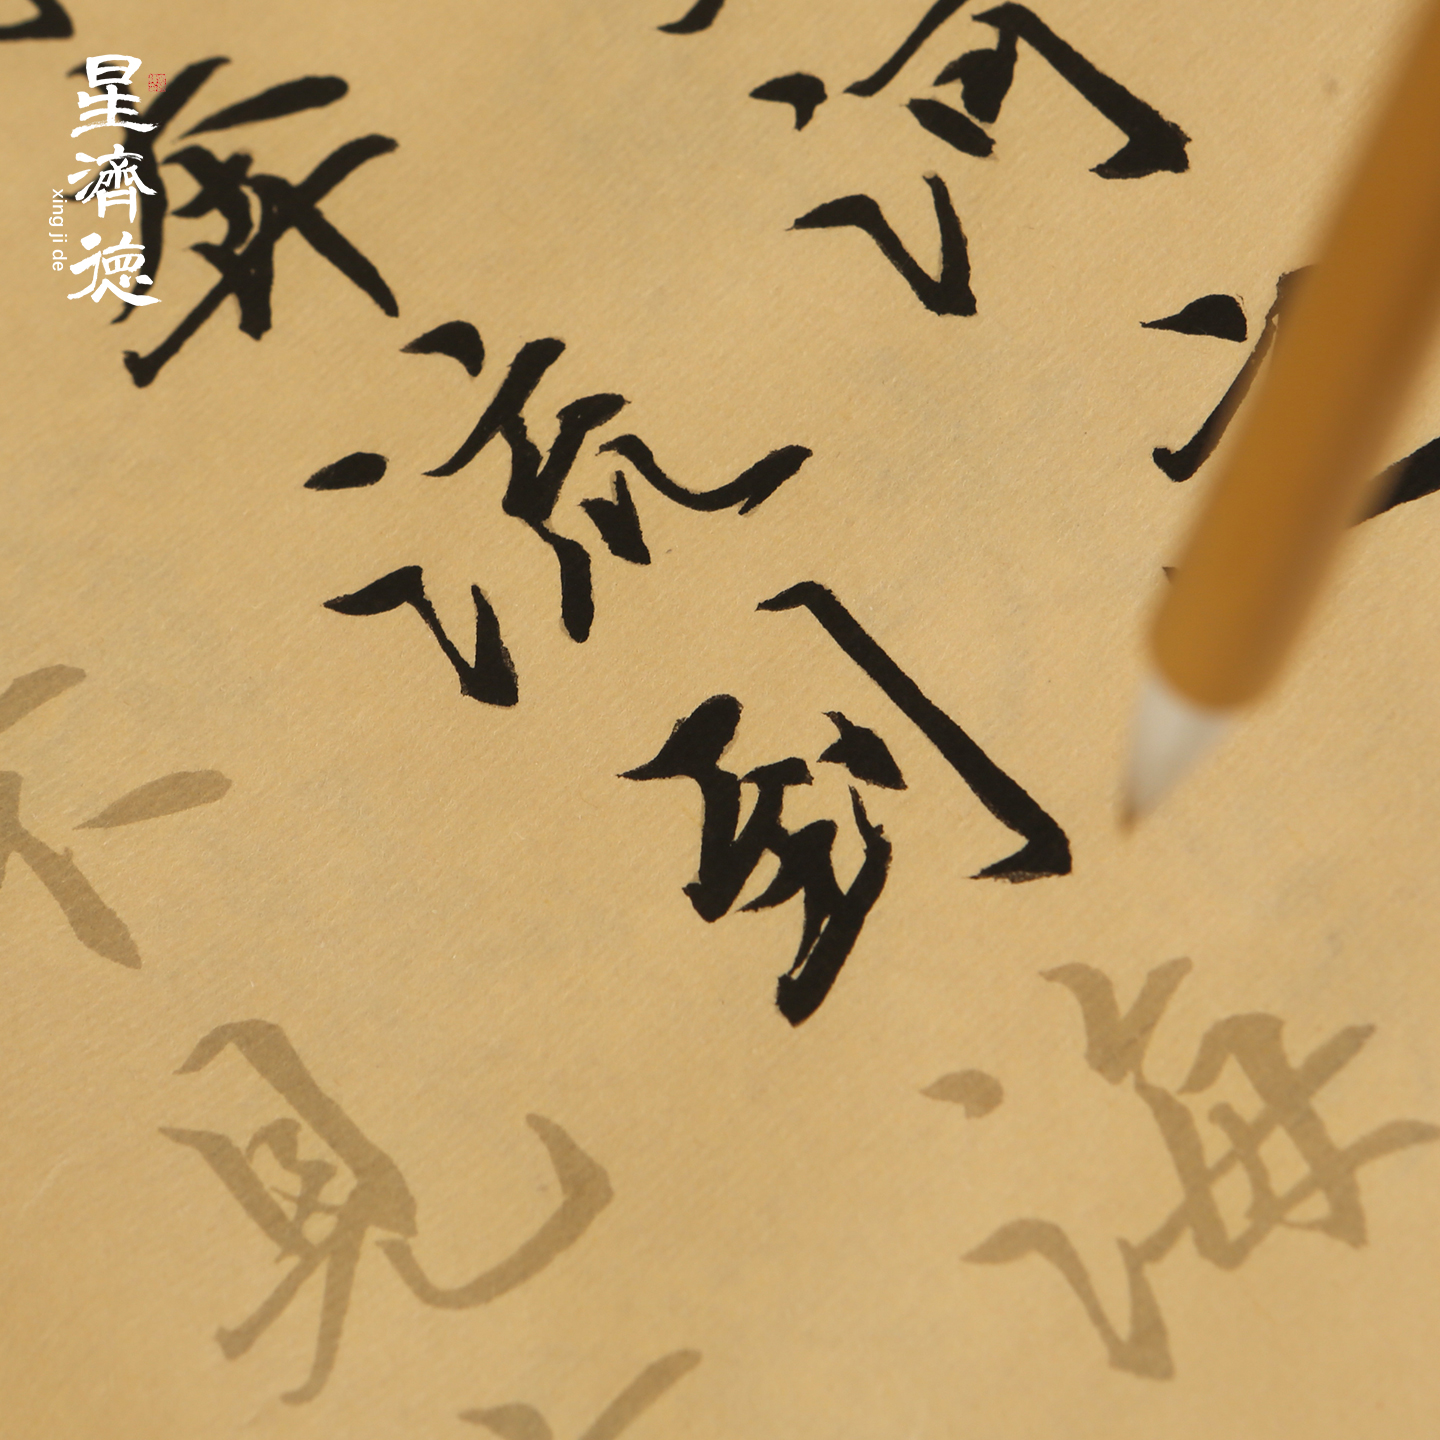 星濟德
xing ji de
河
奔流到海
不見